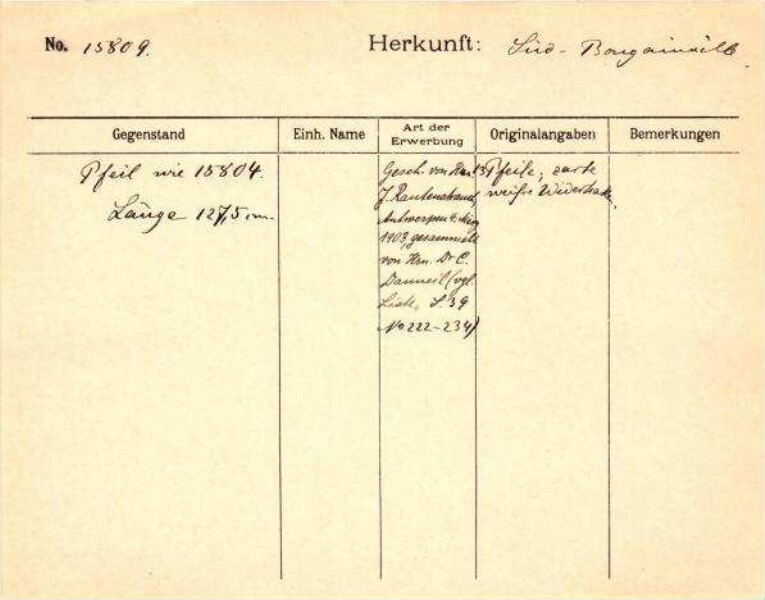 No. 15809. Herkunft: Süd-Bougainville
Gegenstand Einh. Name Art der Erwerbung Originalangaben Bemerkungen
Pfeil wie 15804.
Länge 127,5 cm.
Gesch. von Hrn.
J. Rautenstrauch,
Antwerpen 9. März
1903, gesammelt
von Hrn. Dr C.
Danneil (vgl.
Liste, S. 39
No 222-234)
13 Pfeile; zarte
weiße Widerhaken.